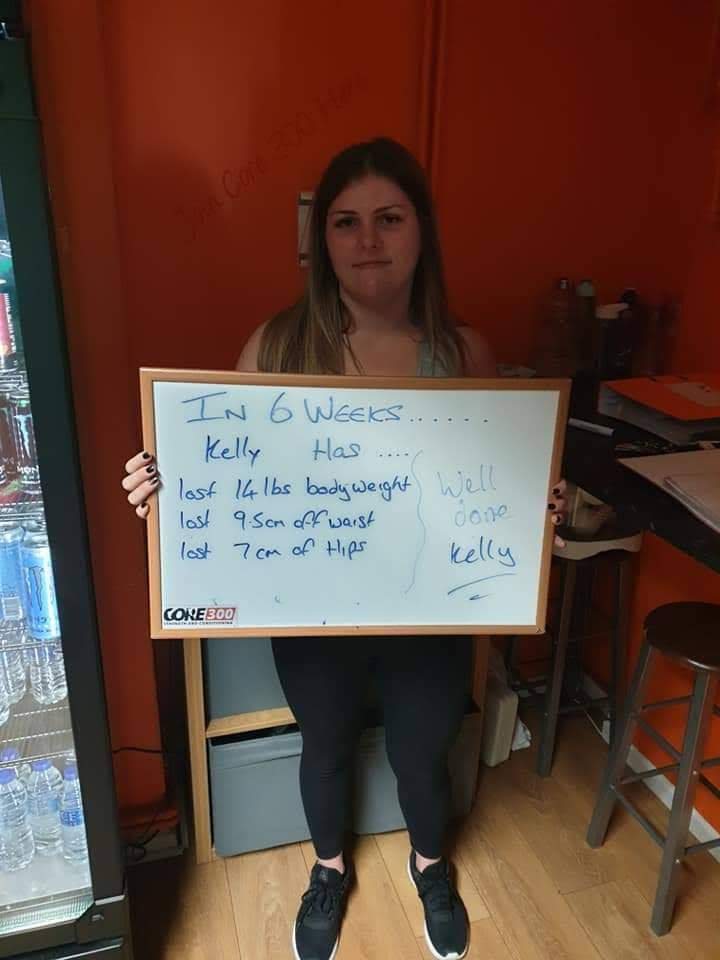 Join Core 300 Here
IN 6 WEEKS......
Kelly Has ....
lost 14 lbs bodyweight
lost 9.5cm off waist
lost 7cm of Hips
Well
done
Kelly
CORE 300
STRENGTH AND CONDITIONING